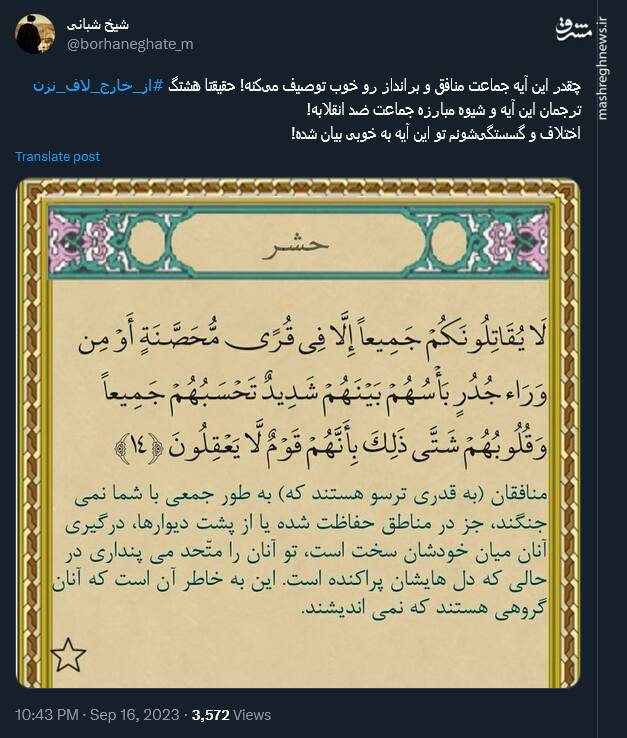 شیخ شبانی
@borhaneghate_m
مشرق
mashreghnews.ir
چقدر این آیه جماعت منافق و برانداز رو خوب توصیف می‌کنه! حقیقتا هشتگ #از_خارج_لاف_نزن
ترجمان این آیه و شیوه مبارزه جماعت ضد انقلابه!
اختلاف و گسستگی‌شونم تو این آیه به خوبی بیان شده!
Translate post
حشر
لَا يُقَاتِلُونَكُمْ جَمِيعاً إِلَّا فِي قُرًى مُّحَصَّنَةٍ أَوْ مِن
وَرَاء جُدُرٍ بَأْسُهُمْ بَيْنَهُمْ شَدِيدٌ تَحْسَبُهُمْ جَمِيعاً
وَقُلُوبُهُمْ شَتَّى ذَلِكَ بِأَنَّهُمْ قَوْمٌ لَّا يَعْقِلُونَ ﴿١٤﴾
منافقان (به قدری ترسو هستند که) به طور جمعی با شما نمی
جنگند، جز در مناطق حفاظت شده یا از پشت دیوارها، درگیری
آنان میان خودشان سخت است، تو آنان را متّحد می پنداری در
حالی که دل هایشان پراکنده است. این به خاطر آن است که آنان
گروهی هستند که نمی اندیشند.
10:43 PM · Sep 16, 2023 · 3,572 Views